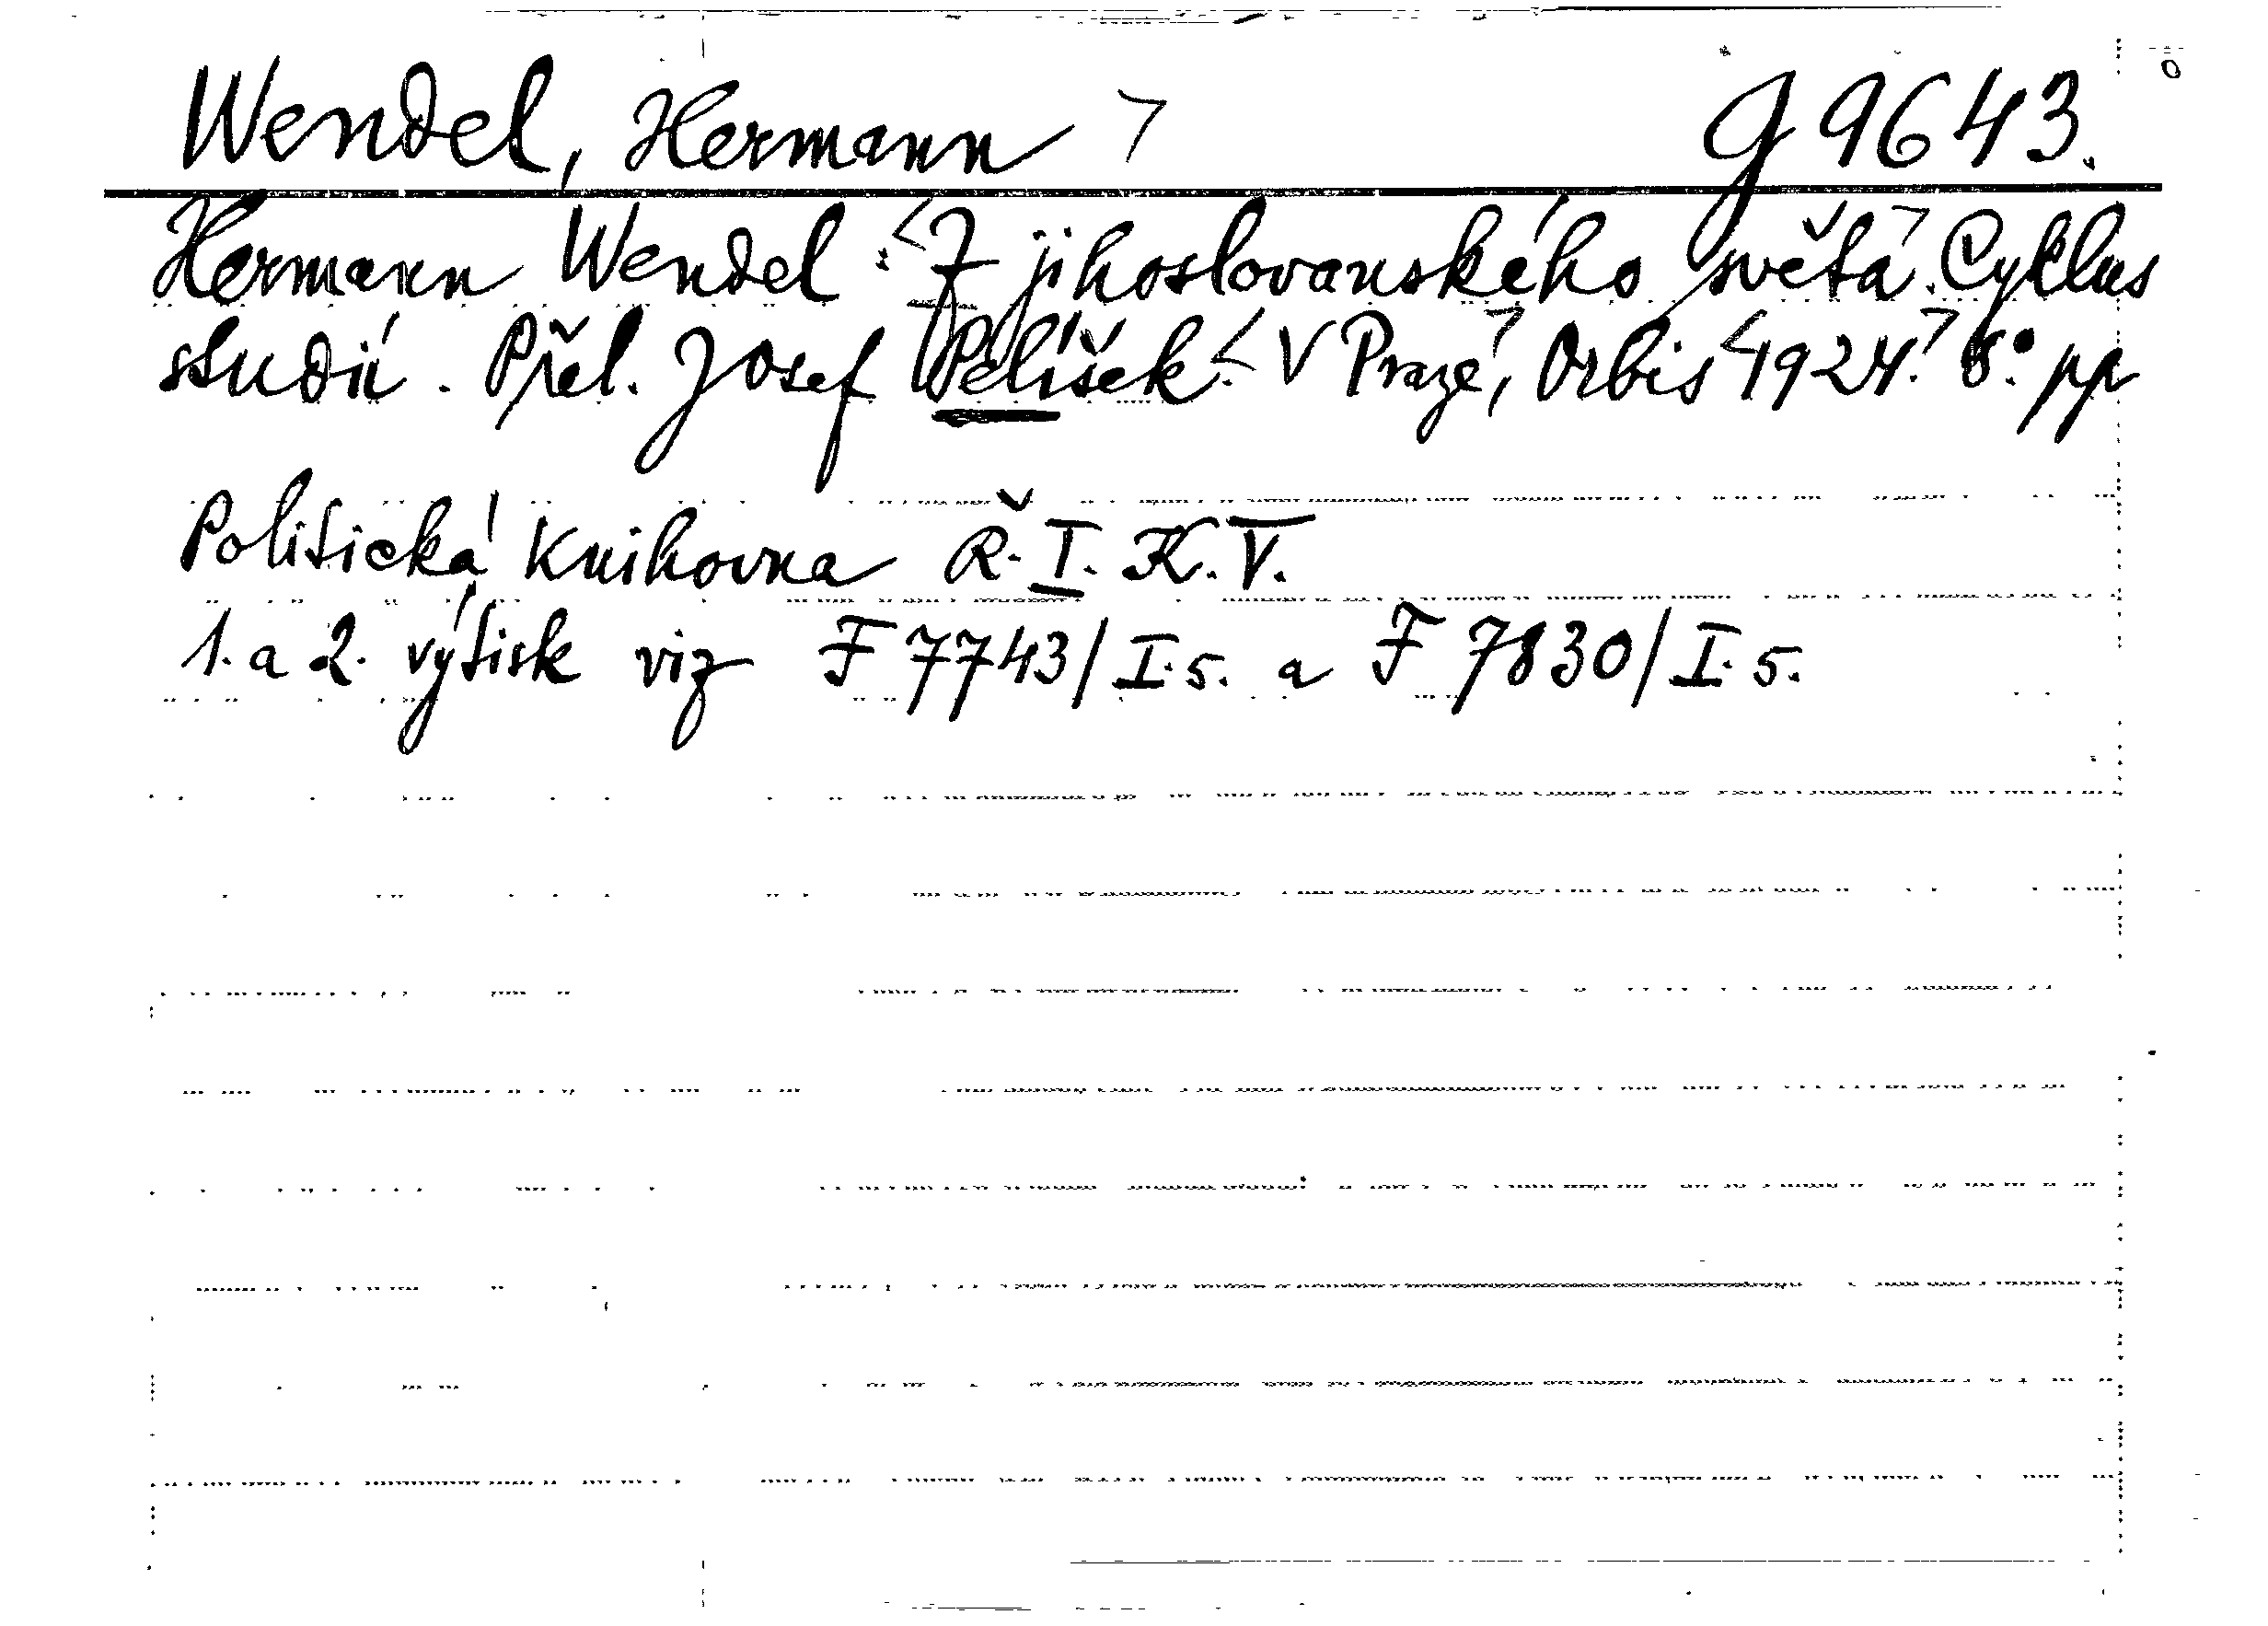 Wendel, Hermann g 9643.
Hermann Wendel: Z jihoslovanského světa. Cyklus
studií. Přel. Josef Pelíšek. V Praze, Orbis 1924. 8°. pp
Politická knihovna Ř. I. K. V.
1. a 2. výtisk viz F 7743/I.5. a F 7830/I.5.